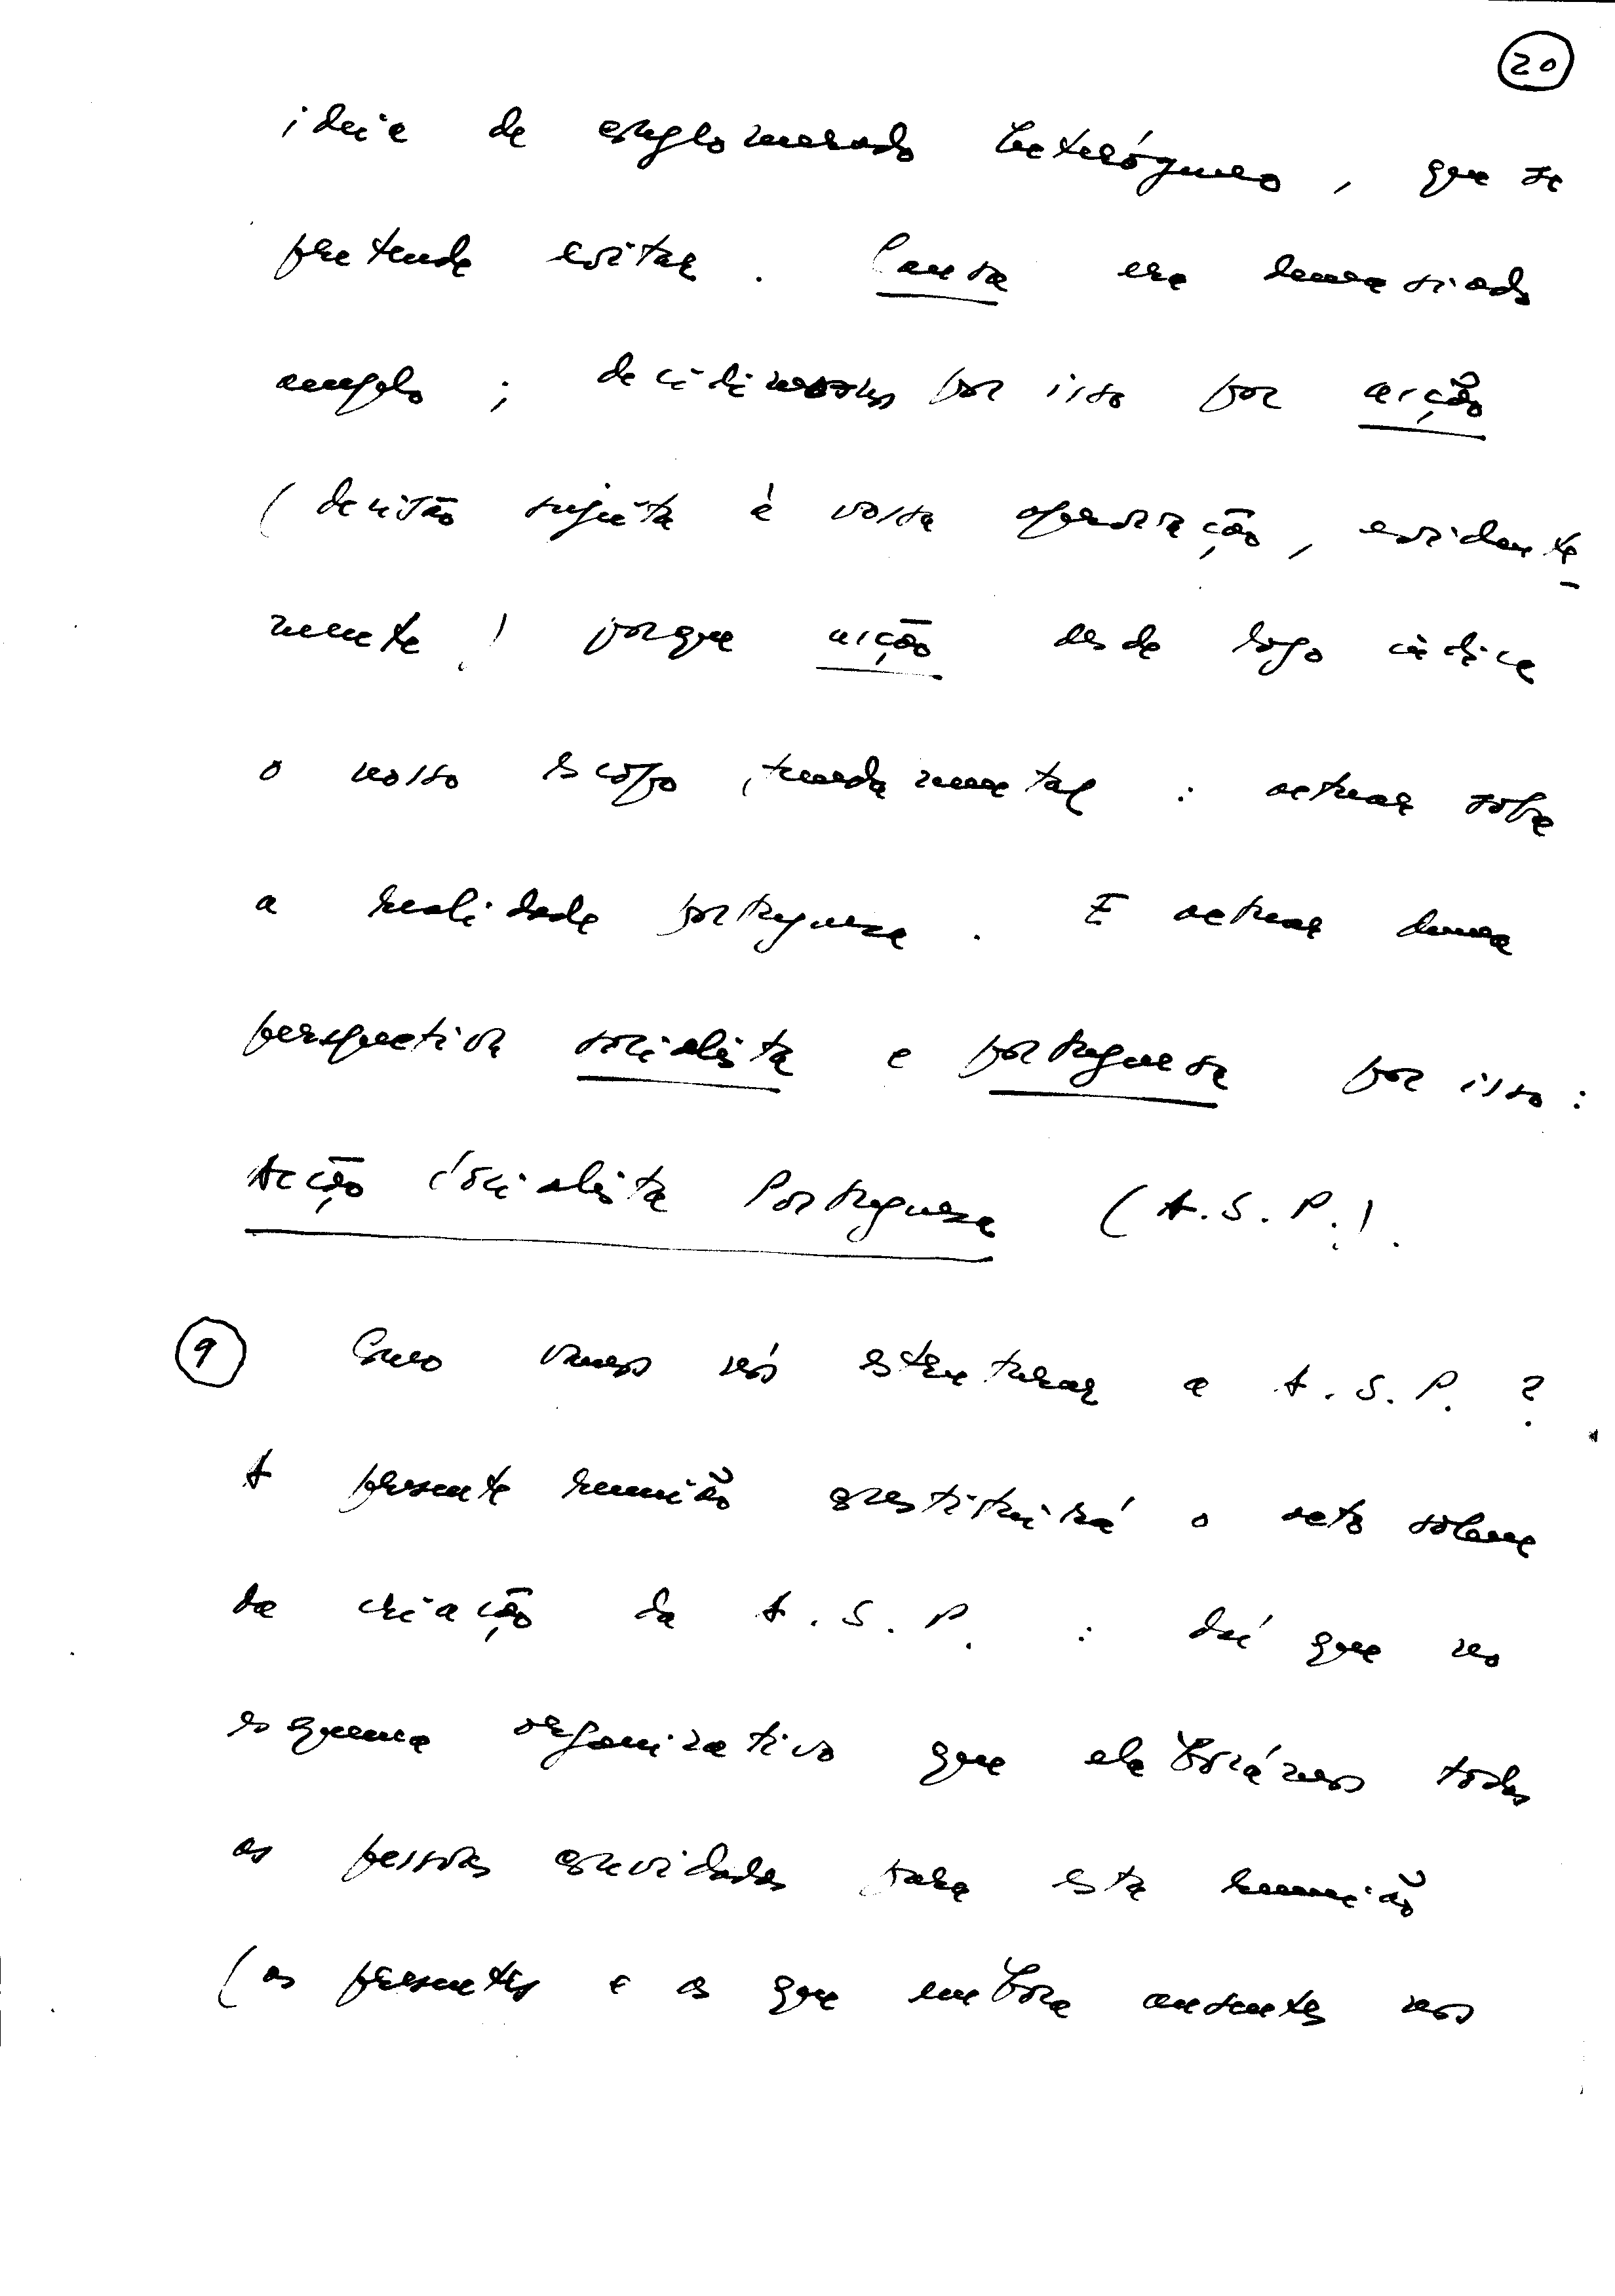 20
ideia de conglomerado heterógeneo, que se
pretende evitar. Causa era demasiado
amplo; decidimo-nos por isso por acção
(decisão sujeita à vossa aprovação, evidente-
mente) porque acção desde logo indica
o nosso escopo fundamental: actuar sobre
a realidade portuguesa. E actuar numa
perspectiva socialista e portuguesa por isso:
Acção Socialista Portuguesa (A.S.P.).
9 Como vamos nós estruturar a A.S.P.?
A presente reunião constituirá o acto solene
da criação da A.S.P.: daí que no
esquema organizativo que elaborámos todas
as pessoas convidadas para esta reunião
(os presentes e os que embora ausentes nos